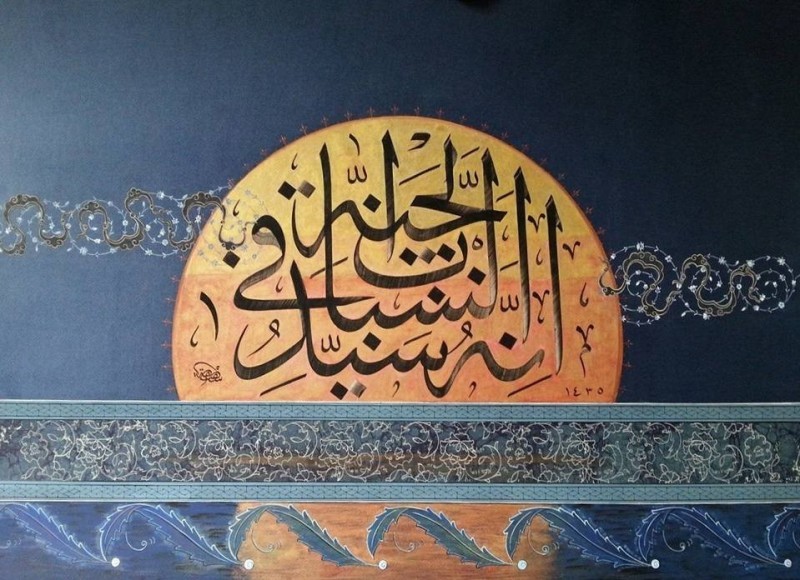 انّه سيّد الشباب في الجنّة
١٤٣٥